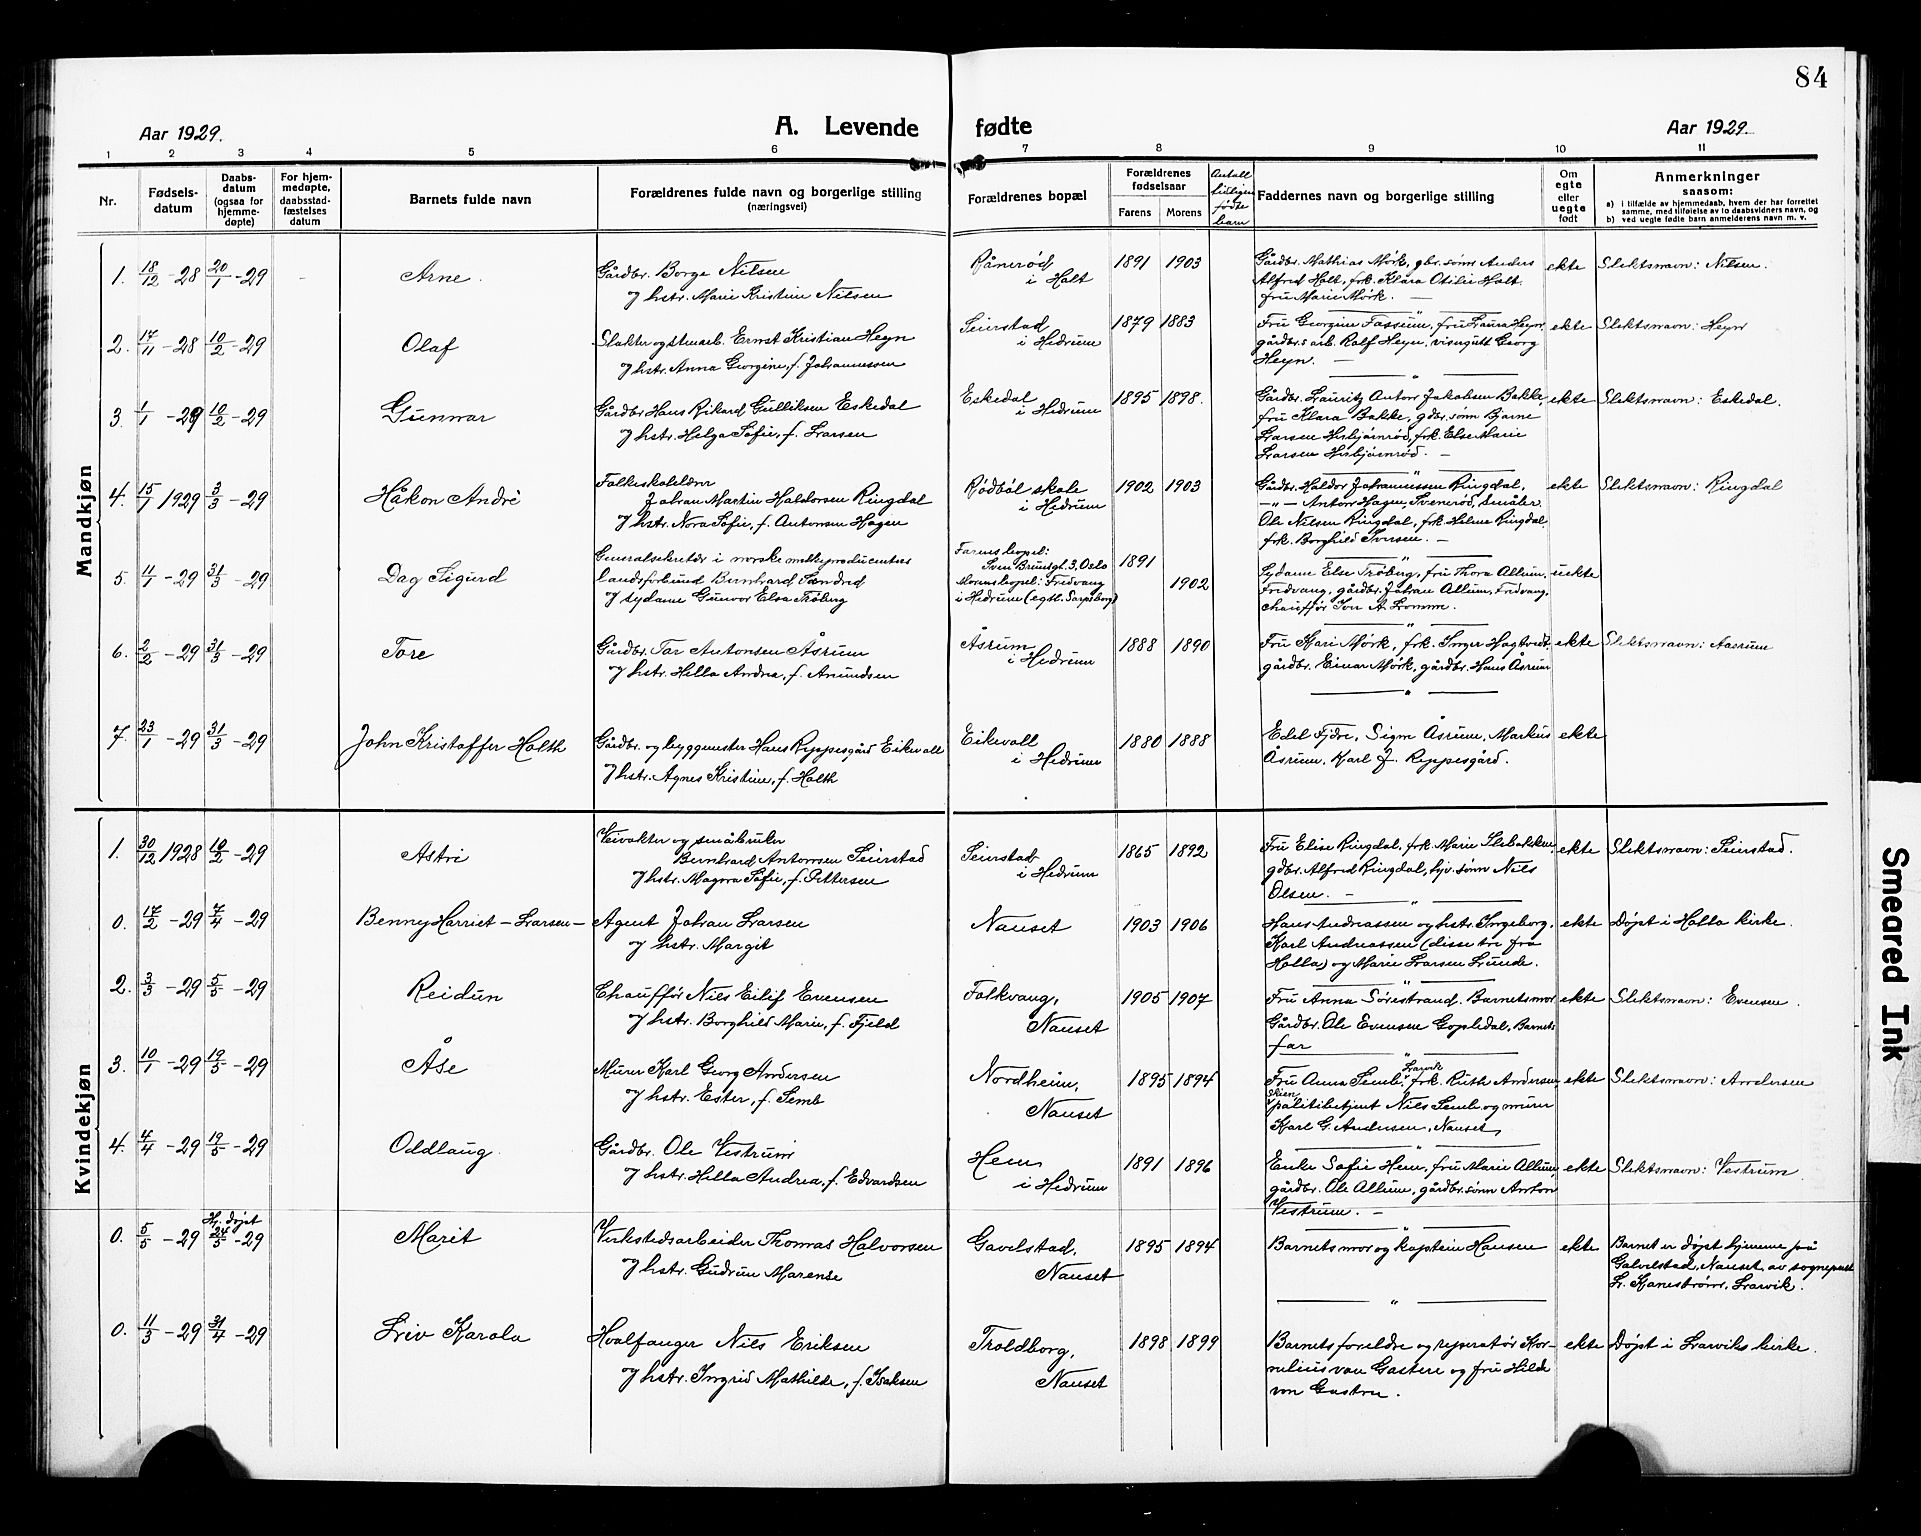 84
Aar 1929.
A. Levende fødte
Aar 1929.
1 2 3 4 5 6 7 8 9 10 11
Nr.
Fødsels-
datum
Daabs-
datum
(ogsaa for
hjemme-
døpte)
For hjem-
medøpte,
daabsstad-
fæstelses
datum
Barnets fulde navn
Forældrenes fulde navn og borgerlige stilling
(næringsvei)
Forældrenes bopæl
Forældrenes
fødselsaar
Farens Morens
Antall
tidligere
fødte
barn
Faddernes navn og borgerlige stilling
Om
egte
eller
uegte
født
Anmerkninger
saasom:
a) i tilfælde av hjemmedaab, hvem der har forrettet
samme, med tilføielse av to daabsvidners navn, og
b) ved uegte fødte barn anmelderens navn m. v.
Mandkjøn
1. 18/12 -28 20/1 -29 Arne.
Gårdbr. Borge Nilsen
og hstr. Marie Kristine Nilsen
Rånerød
i Halt
1891 1903
Gårdbr. Mathias Mørk, gbr. sønn Anders
Alfred Halt, frk. Klara Otilie Halt.
fru Marie Mørk. —
ekte Slektsnavn: Nilsen.
2. 17/11 -28 10/2 -29 Olaf
Slakter og stenarb. Ernst Kristian Heyn
og hstr. Anna Georgine, f. Johannessen
Seierstad
i Hedrum
1879 1883
Fru Georgine Fossum, fru Laura Heyn,
gårdbr.s arb. Ralf Heyn, visergutt Georg
Heyn. —
ekte Slektsnavn: Heyn
3. 1/1 -29 10/2 -29 Gunnar
Gårdbr. Hans Rikard Gulliksen Eskedal
og hstr. Helga Sofie, f. Larsen
Eskedal
i Hedrum
1895 1898.
Gårdbr. Lauritz Anton Jakobsen Bakke,
fru Klara Bakke, gdbr. sønn Bjarne
Larsen Hvisbjørnrød, frk. Else Marie
Larsen Hvisbjørnrød. —
ekte Slektsnavn: Eskedal.
4. 15/1 1929 3/3 -29 Håkon André
Folkeskolelærer
Johan Martin Haldorsen Ringdal
og hstr. Nora Sofie, f. Antonsen Hagen
Rødbøl skole
i Hedrum
1902 1903
Gårdbr. Haldor Johannessen Ringdal,
— " — Anton Hagen, Svenerød, småbr.
Ole Nilsen Ringdal, frk. Helene Ringdal
frk. Borghild Iversen. —
ekte Slektsnavn: Ringdal
5. 11/1 -29 31/3 -29 Dag Sigurd
Generalsekretær i norske melkeproducenters
landsforbund Bernhard Sandred
og sydame Gunvor Elsa Trøberg
Farens bopel:
Sven Bruns gt. 3, Oslo
Morens bopel: Fridvang
i Hedrum (egtl. Sarpsborg)
1891
1902
Sydame Else Trøberg, fru Thora Allum,
Fridvang, gårdbr. Johan Allum, Fridvang,
chauffør Iver A. Lomm.
uekte
6. 2/2 -29 31/3 -29 Tore
Gårdbr. Tor Antonsen Åsrum
og hstr. Hella Andrea, f. Amundsen
Åsrum
i Hedrum
1888 1890
Fru Kari Mørk, frk. Inger Hagtvedt,
gårdbr. Einar Mørk, gårdbr. Hans Åsrum
ekte Slektsnavn: Aasrum
7. 23/1 -29 31/3 -29 John Kristoffer Holth
Gårdbr. og byggmester Hans Reppesgård Eikevall
og hstr. Agnes Kristine, f. Holth
Eikevall
i Hedrum
1880 1888
Edel Fjøre, Sigm Åsrum, Markus
Åsrum, Karl J. Reppesgård.
ekte
Kvindekjøn
1. 30/12 1928 10/2 -29 Astri
Veivokter og småbruker
Bernhard Antonsen Seierstad
og hstr. Magna Sofie, f. Pettersen
Seierstad
i Hedrum
1865 1892
Fru Elise Ringdal, frk. Marie Slebakken,
gdbr. Alfred Ringdal, hjv. sønn Nils
Olsen. —
ekte Slektsnavn: Seierstad.
0. 17/2 -29 7/4 -29 Benny Harriet – Larsen –
Agent Johan Larsen
og hstr. Margit
Nanset
1903 1906
Hans Andreassen og hstr. Ingeborg.
Karl Andreassen (disse tre fra
Holla) og Marie Larsen Lunde.
ekte Døpt i Holla kirke.
2. 3/3 -29 5/5 -29 Reidun
Chauffør Nils Eilif Evensen
og hstr. Borghild Marie, f. Fjeld
Folkvang,
Nanset
1905 1907
Fru Anna Sørestrand. Barnets mor
Gårdbr. Ole Evensen Gopledal, Barnets
far
ekte Slektsnavn: Evensen.
3. 10/1 -29 19/5 -29 Åse
Murer Karl Georg Andersen
og hstr. Ester, f. Semb
Nordheim,
Nanset
1895 1894
Fru Anna Semb, Larvik frk. Ruth Andersen
Skien politibetjent Nils Semb og murer
Karl G. Andersen, Nanset
ekte Slektsnavn: Andersen
4. 4/4 -29 19/5 -29 Oddlaug.
Gårdbr. Ole Vestrum
og hstr. Hella Andrea, f. Edvardsen
Hem
i Hedrum
1891 1896
Enke Sofie Hem, fru Marie Allum,
gårdbr. Ole Allum, gårdbr. sønn Anton
Vestrum. —
ekte Slektsnavn: Vestrum
0. 5/5 -29 Hj. døpt 24/5 -29 Marit
Verkstedsarbeider Thomas Halvorsen
og hstr. Gudrun Marense
Gavelstad,
Nanset
1895 1894
Barnets mor og kaptein Hansen
ekte Barnet er døpt hjemme på
Galvelstad, Nanset av sogneprest
L. Kanestrøm, Larvik.
0. 11/3 -29 31/4 -29 Liv Karola
Hvalfanger Nils Eriksen
og hstr. Ingrid Mathilde, f. Isaksen
Troldborg,
Nanset
1898 1899
Barnets foreldre og reperatør Kor-
nelius van Gastere og fru Hilde
von Gastere.
ekte Døpt i Larviks kirke.
Smeared Ink